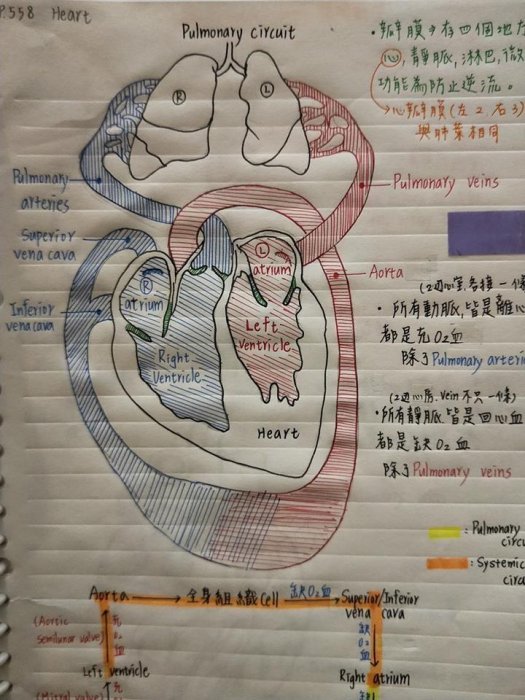 P.558 Heart
Pulmonary circuit
R
L
Pulmonary
arteries
Superior
vena cava
Inferior
vena cava
Pulmonary veins
Aorta
R
atrium
L
atrium
Right
Ventricle
Left
Ventricle
Heart
• 瓣膜→存四個地方
心, 靜脈, 淋巴, 微
功能為防止逆流。
→心瓣膜(左2, 右3)
與肺葉相同
(2邊心室, 各接一條
• 所有動脈, 皆是離心
都是充O2血
除了Pulmonary arteri
(2邊心房, vein不只一條)
• 所有靜脈皆是回心血
都是缺O2血
除了Pulmonary veins
: Pulmonary
circu
: Systemic
circu
Aorta → 全身組織Cell 缺O2血 Superior/Inferior
vena cava
(Aortic
semilunar valve)
充
O2
血
缺
O2
血
Left ventricle
Right atrium
(Mitral valve)
充
缺